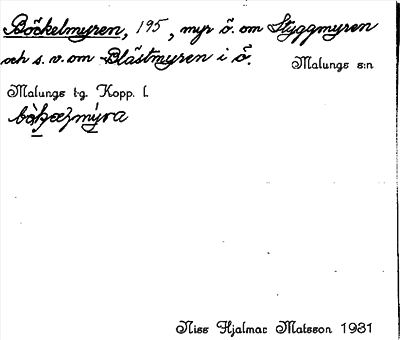 Böckelmyren, 195, myr ö. om Styggmyren
och s.v. om Blästmyren i ö.
Malungs s:n
Malungs t:g. Kopp. l.
Niss Hjalmar Matsson 1931